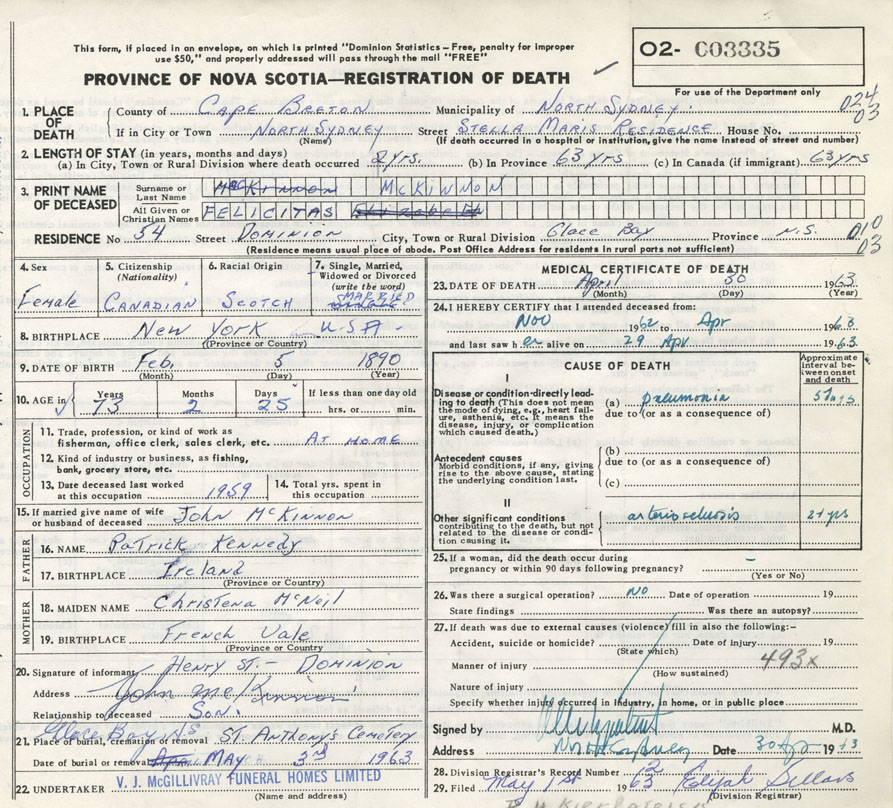 This form, if placed in an envelope, on which is printed "Dominion Statistics—Free, penalty for improper
use $50," and properly addressed will pass through the mail "FREE"
O2- C03335
PROVINCE OF NOVA SCOTIA—REGISTRATION OF DEATH
For use of the Department only
024
03
1. PLACE OF DEATH
County of CAPE BRETON Municipality of NORTH SYDNEY
If in City or Town NORTH SYDNEY Street STELLA MARIS RESIDENCE House No.
(Name) (If death occurred in a hospital or institution, give the name instead of street and number)
2. LENGTH OF STAY (in years, months and days)
(a) In City, Town or Rural Division where death occurred 2 yrs. (b) In Province 63 yrs (c) In Canada (if immigrant) 63 yrs
3. PRINT NAME OF DECEASED
Surname or Last Name McKINNON McKINNON
All Given or Christian Names FELICITAS Elizabeth
RESIDENCE No 34 Street DOMINION City, Town or Rural Division Glace Bay Province N.S. 010
03
(Residence means usual place of abode. Post Office Address for residents in rural parts not sufficient)
4. Sex Female
5. Citizenship (Nationality) CANADIAN
6. Racial Origin SCOTCH
7. Single, Married, Widowed or Divorced (write the word) MARRIED
8. BIRTHPLACE New York U.S.A.
(Province or Country)
9. DATE OF BIRTH Feb. 5 1890
(Month) (Day) (Year)
10. AGE in Years 73 Months 2 Days 25 If less than one day old hrs. or min.
OCCUPATION
11. Trade, profession, or kind of work as fisherman, office clerk, sales clerk, etc. AT HOME
12. Kind of industry or business, as fishing, bank, grocery store, etc.
13. Date deceased last worked at this occupation 1959
14. Total yrs. spent in this occupation
15. If married give name of wife or husband of deceased John McKINNON
FATHER
16. NAME Patrick Kennedy
17. BIRTHPLACE Ireland
(Province or Country)
MOTHER
18. MAIDEN NAME Christena McNeil
19. BIRTHPLACE French Vale
(Province or Country)
20. Signature of informant HENRY ST.- DOMINION
Address John McKinnon
Relationship to deceased Son.
Glace Bay N.S.
21. Place of burial, cremation or removal ST. Anthony's Cemetery
Date of burial or removal MAY 3rd 1963
22. UNDERTAKER V. J. McGILLIVRAY FUNERAL HOMES LIMITED
(Name and address)
MEDICAL CERTIFICATE OF DEATH
23. DATE OF DEATH April 30 1963
(Month) (Day) (Year)
24. I HEREBY CERTIFY that I attended deceased from:
Nov 1962 to Apr 1963
and last saw h er alive on 29 Apr 1963
CAUSE OF DEATH
Approximate interval between onset and death
I
Disease or condition directly leading to death (This does not mean the mode of dying, e.g., heart failure, asthenia, etc. It means the disease, injury, or complication which caused death.)
(a) pneumonia 5 days
due to (or as a consequence of)
Antecedent causes
Morbid conditions, if any, giving rise to the above cause, stating the underlying condition last.
(b)
due to (or as a consequence of)
(c)
II
Other significant conditions
contributing to the death, but not related to the disease or condition causing it.
arteriosclerosis 2+ yrs
25. If a woman, did the death occur during
pregnancy or within 90 days following pregnancy? –
(Yes or No)
26. Was there a surgical operation? NO Date of operation 19
State findings Was there an autopsy?
27. If death was due to external causes (violence) fill in also the following:-
Accident, suicide or homicide? Date of injury 19
(State which)
Manner of injury 493x
(How sustained)
Nature of injury
Specify whether injury occurred in industry, in home, or in public place
Signed by M.D.
Address North Sydney Date 30 Apr 1963
28. Division Registrar's Record Number
29. Filed May 1st 1963 Elijah Sellars
(Division Registrar)